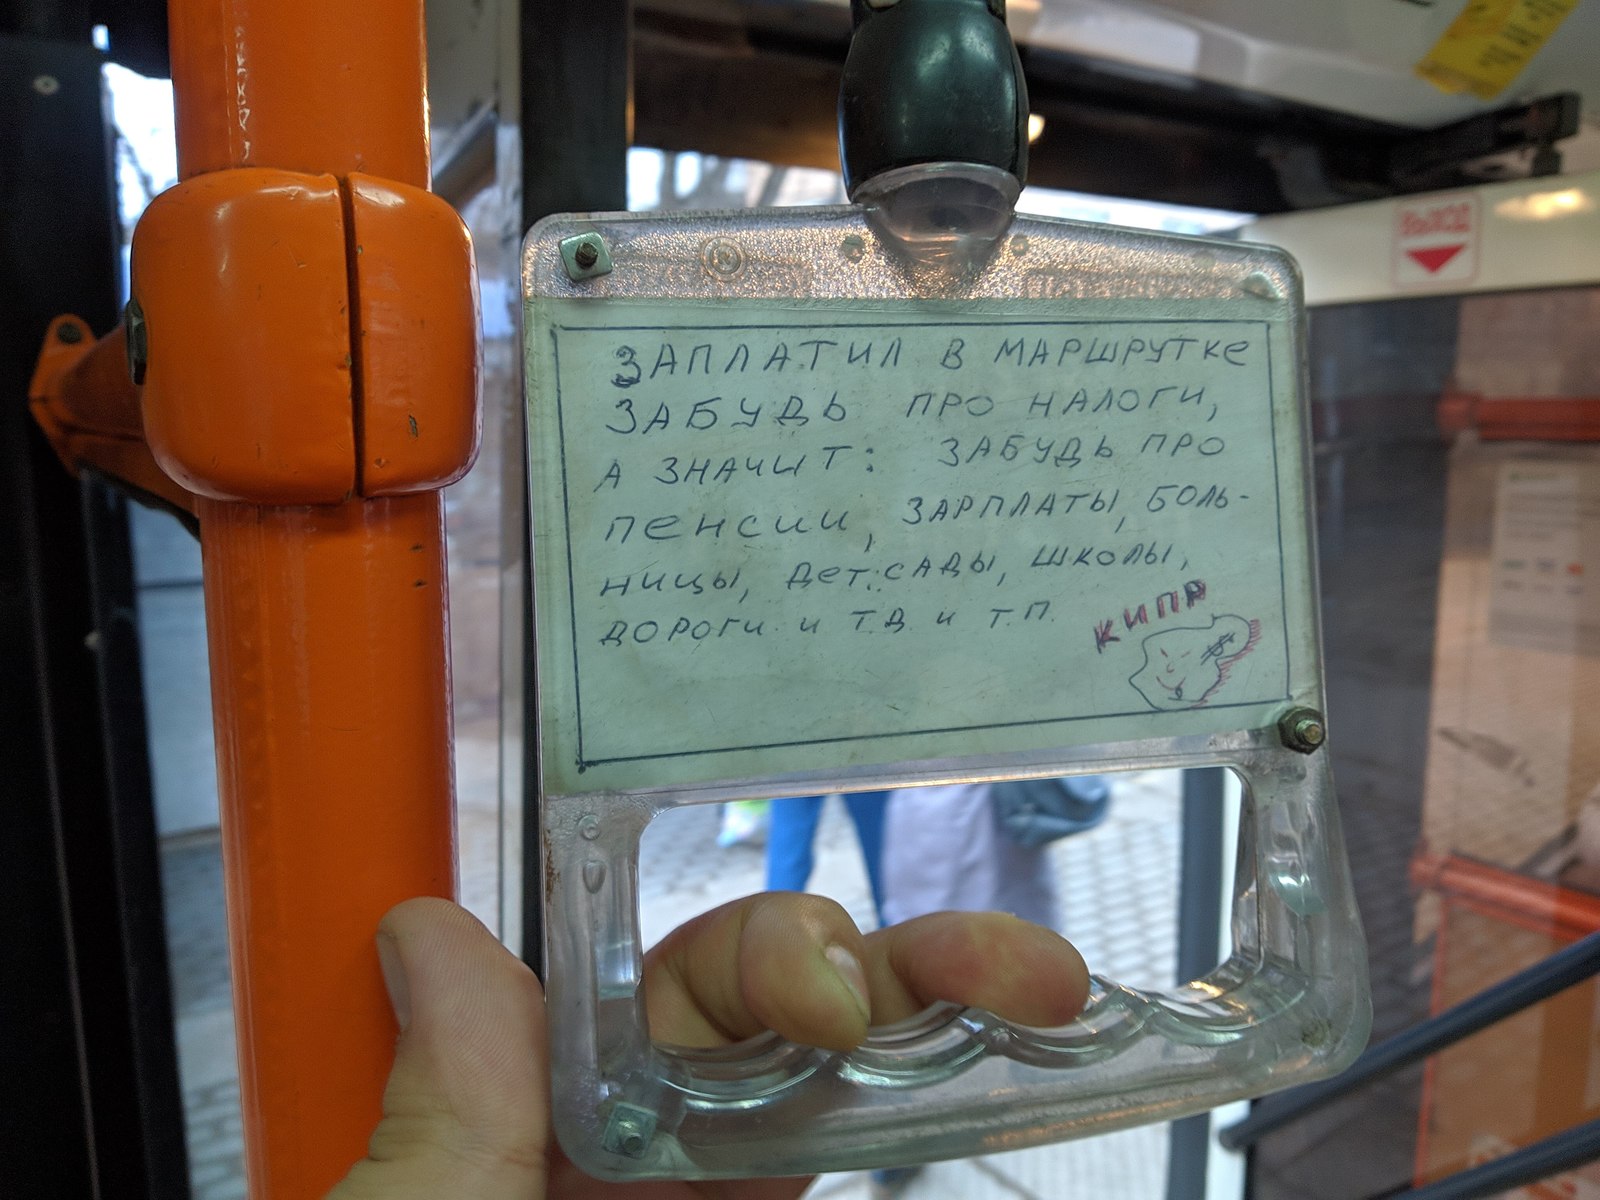 ЗАПЛАТИЛ В МАРШРУТКЕ
ЗАБУДЬ ПРО НАЛОГИ,
А ЗНАЧИТ: ЗАБУДЬ ПРО
ПЕНСИИ, ЗАРПЛАТЫ, БОЛЬ-
НИЦЫ, ДЕТ.САДЫ, ШКОЛЫ,
ДОРОГИ И Т.Д И Т.П.
КИПР
$
ВЫХОД